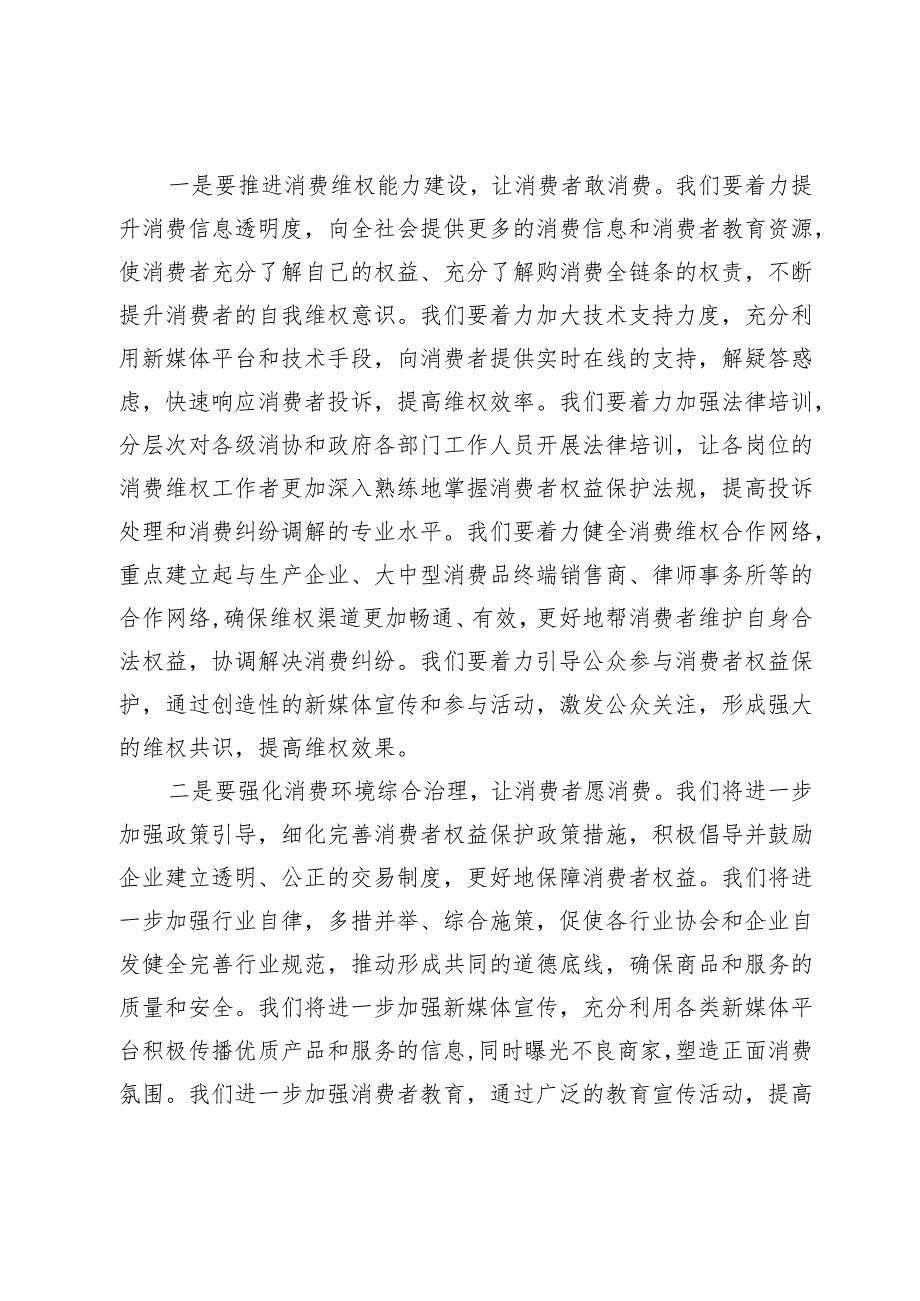 一是要推进消费维权能力建设，让消费者敢消费。我们要着力提
升消费信息透明度，向全社会提供更多的消费信息和消费者教育资源，
使消费者充分了解自己的权益、充分了解购消费全链条的权责，不断
提升消费者的自我维权意识。我们要着力加大技术支持力度，充分利
用新媒体平台和技术手段，向消费者提供实时在线的支持，解疑答惑
虑，快速响应消费者投诉，提高维权效率。我们要着力加强法律培训，
分层次对各级消协和政府各部门工作人员开展法律培训，让各岗位的
消费维权工作者更加深入熟练地掌握消费者权益保护法规，提高投诉
处理和消费纠纷调解的专业水平。我们要着力健全消费维权合作网络，
重点建立起与生产企业、大中型消费品终端销售商、律师事务所等的
合作网络,确保维权渠道更加畅通、有效，更好地帮消费者维护自身合
法权益，协调解决消费纠纷。我们要着力引导公众参与消费者权益保
护，通过创造性的新媒体宣传和参与活动，激发公众关注，形成强大
的维权共识，提高维权效果。
二是要强化消费环境综合治理，让消费者愿消费。我们将进一步
加强政策引导，细化完善消费者权益保护政策措施，积极倡导并鼓励
企业建立透明、公正的交易制度，更好地保障消费者权益。我们将进
一步加强行业自律，多措并举、综合施策，促使各行业协会和企业自
发健全完善行业规范，推动形成共同的道德底线，确保商品和服务的
质量和安全。我们将进一步加强新媒体宣传，充分利用各类新媒体平
台积极传播优质产品和服务的信息,同时曝光不良商家，塑造正面消费
氛围。我们进一步加强消费者教育，通过广泛的教育宣传活动，提高